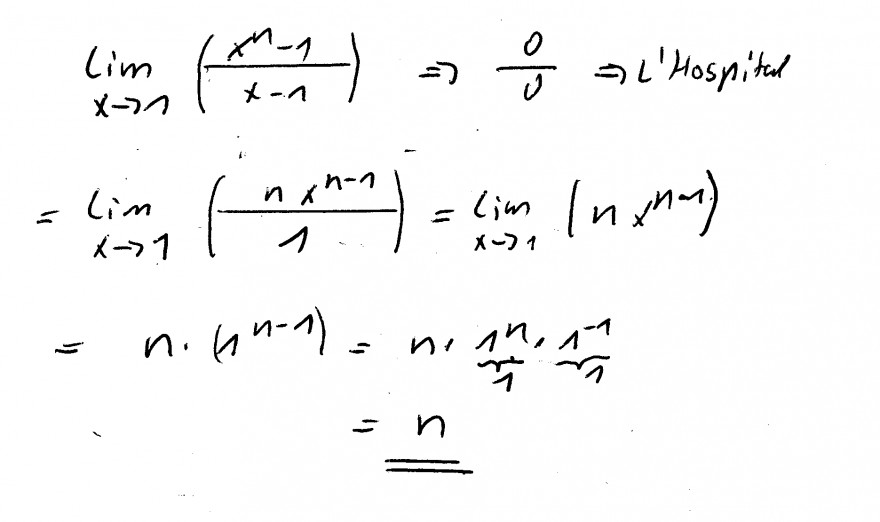 lim x→1 (x^n-1 / x-1) ⇒ 0/0 ⇒ L'Hospital
= lim x→1 (n x^n-1 / 1) = lim x→1 (n x^n-1)
= n · (1^n-1) = n · 1^n · 1^-1
1 1
= n